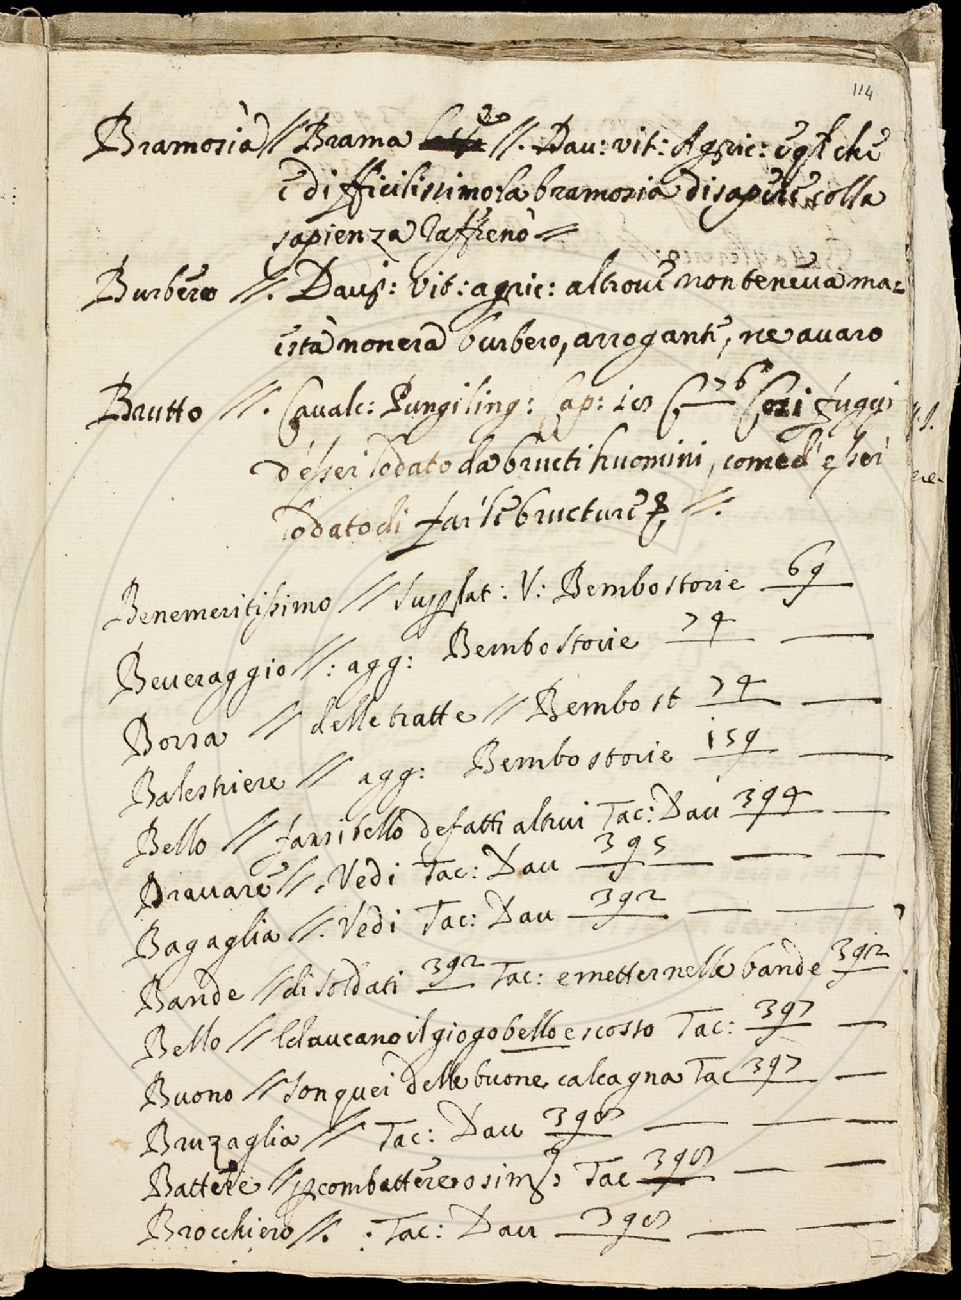 114
Bramosia // Brama //. Dau: vit: Agric: egl che
è difficilissimo: la bramosia di sapere colla
sapienza raffrenò =
Burbero //. Daus: vit: agric: altrove non teneva ma=
està non era burbero, arrogante, ne avaro
Brutto //. Cavalc: Pungiling: Cap: Così fuggi
d'esser lodato da bructi huomini, come d'esser
lodato di far le bructure //.
Benemeritissimo // supplat: V: Bembo storie 69
Beveraggio //: agg: Bembo storie 74
Borsa // delle tratte // Bembo st 74
Balestriere // agg: Bembo storie 159
Bello // farsi bello de fatti altrui Tac: Dau 394
Bravare //. Vedi Tac: Dau 395
Bagaglia //. Vedi Tac: Dau 392
Bande // di soldati 392 Tac: e metter nelle bande 392
Bello // laucano il giogo bello e scosso Tac: 397
Buono // son quei delle buone calcagna Tac 397
Bruzaglia // Tac: Dau 398
Battere // combattere o sim: Tac 398
Brocchiero //. Tac: Dau 398